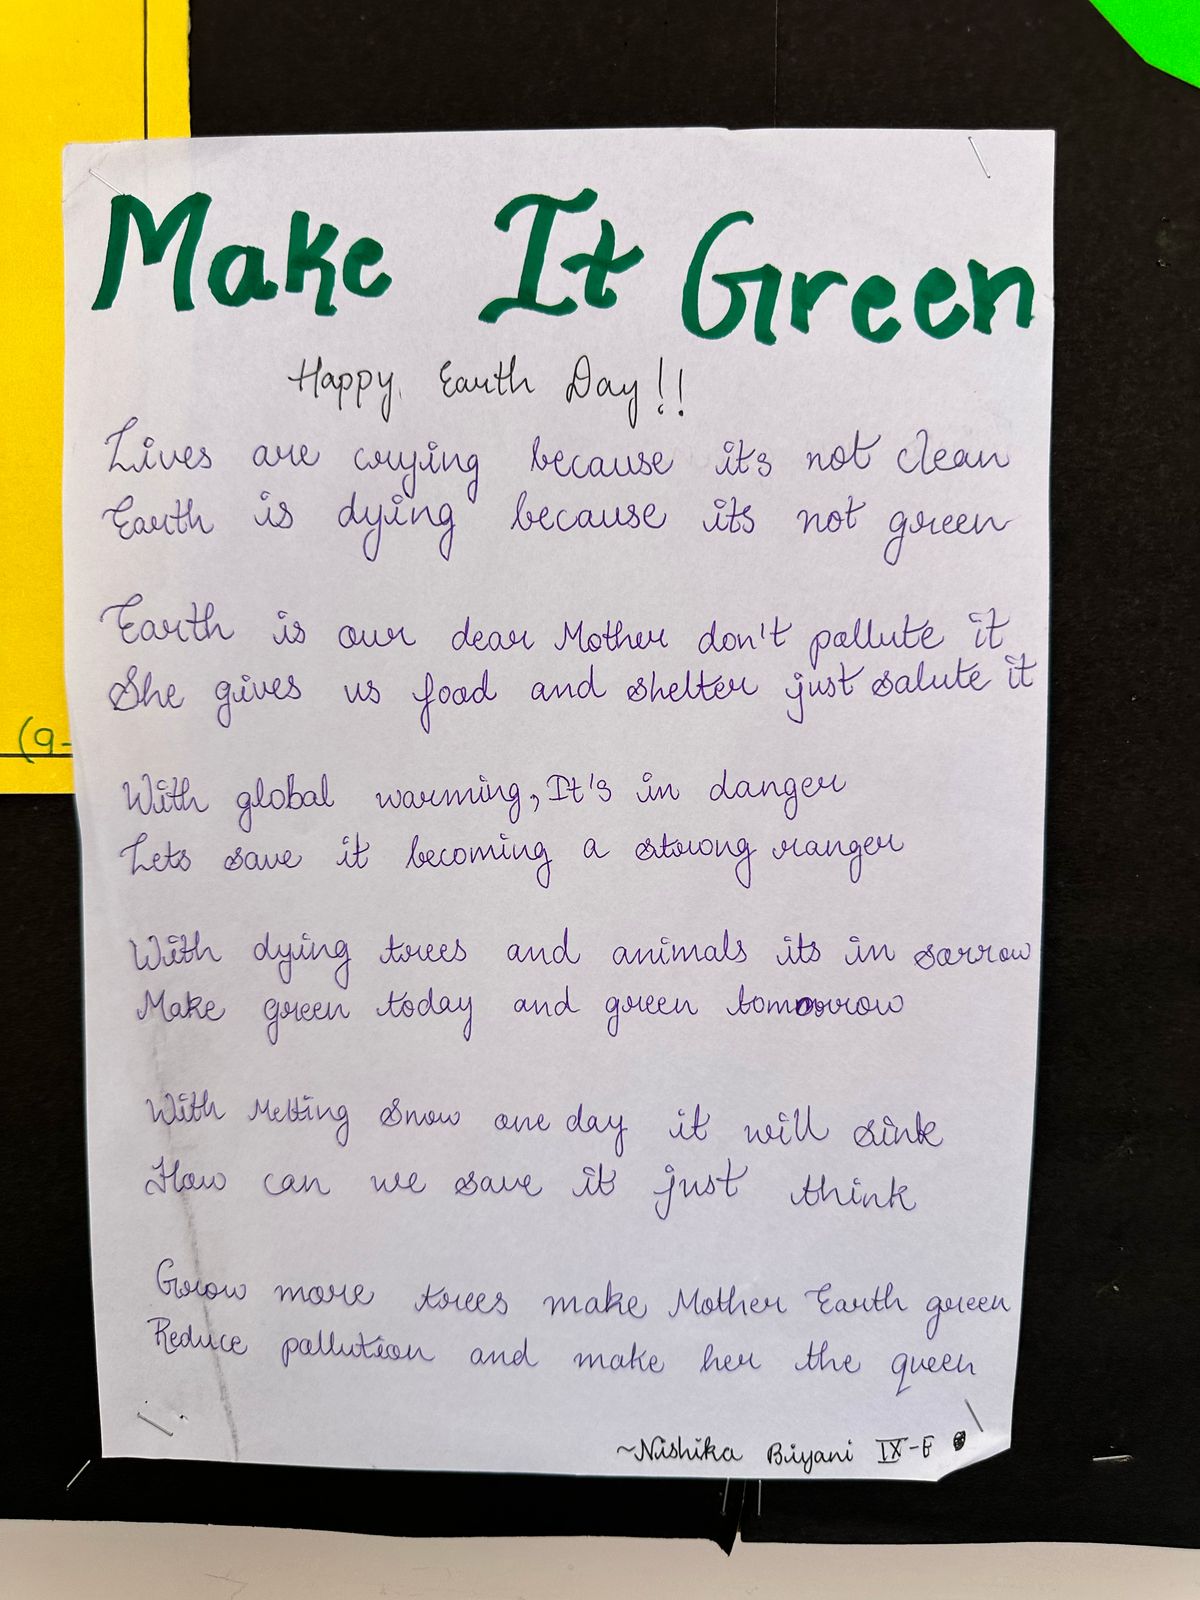 Make It Green
Happy Earth Day!!
Lives are crying because its not clean
Earth is dying because its not green
Earth is our dear Mother don't pollute it
She gives us food and shelter just salute it
With global warming, It's in danger
Lets save it becoming a strong ranger
With dying trees and animals its in sorrow
Make green today and green tomorrow
With Melting Snow one day it will sink
How can we save it just think
Grow more trees make Mother Earth green
Reduce pollution and make her the queen
~Nishika Biyani IX-E
(9-